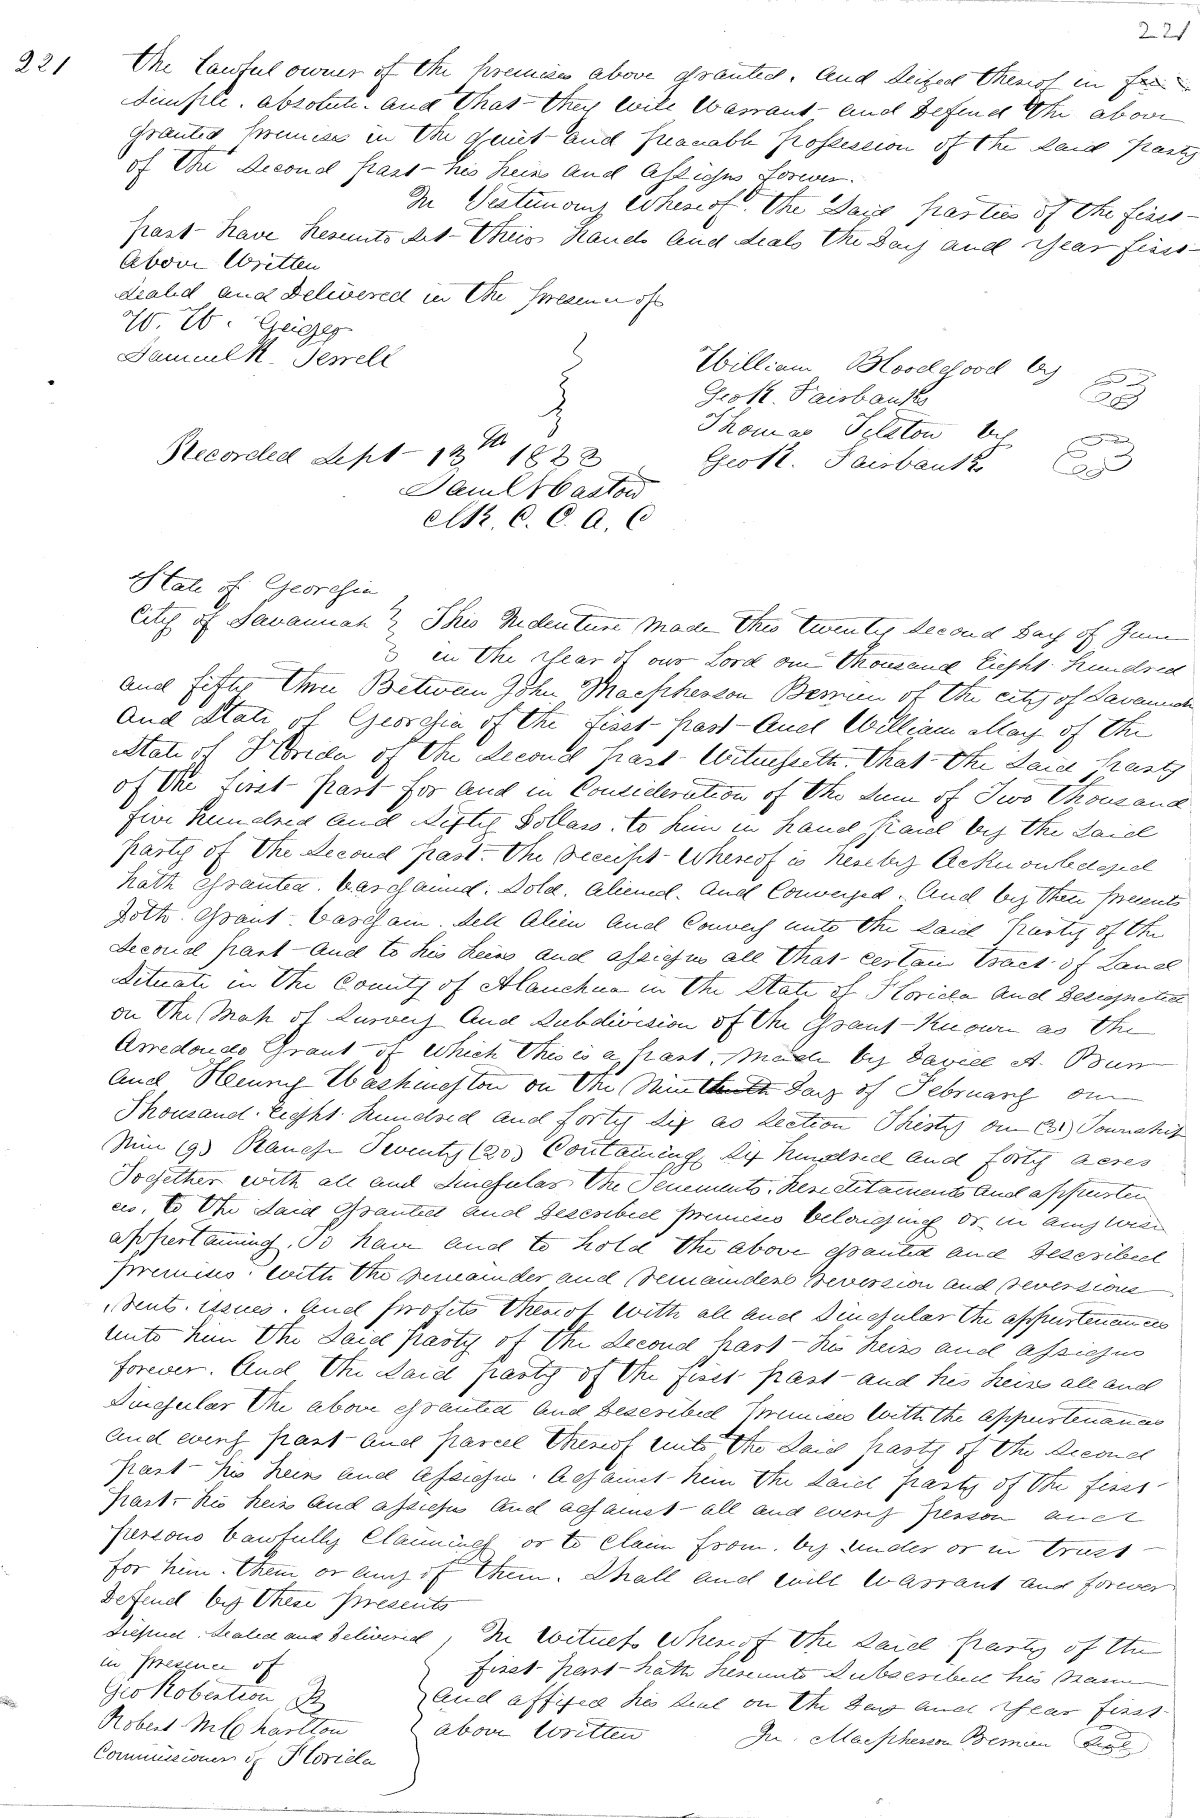 221
221 the Lawful owner of the premises above granted. And Seized thereof in fee
Simple. absolute. and that they will Warrant and Defend the above
granted premises in the quiet and peacable possession of the said party
of the Second part his heirs and assigns forever.
In Testimony Whereof. the Said parties of the first
part have hereunto set their hands and seals the Day and Year first
above Written
Sealed and Delivered in the presence of
W. W. Geiger
Samuel R. Jewell
William Bloodgood by
Geo R. Fairbanks
Thomas Tilston by
Geo R. Fairbanks
Recorded Sept 13th 1833
Clk. C. C. A. C
State of Georgia
City of Savannah This Indenture Made this twenty Second Day of June
in the Year of our Lord one thousand Eight hundred
and fifty three Between John Macpherson Berrien of the city of Savannah
And State of Georgia of the first part And William May of the
State of Florida of the Second part Witnesseth. that the Said party
of the first part for and in Consideration of the Sum of Two thousand
five hundred and Sixty Dollars. to him in hand paid by the Said
party of the Second part. the receipt Whereof is hereby Acknowledged
hath Granted. bargained. Sold. aliened. And Conveyed. And by these presents
Doth. Grant. bargain. Sell Alien and Convey unto the said party of the
Second part and to his heirs and assigns all that certain tract of Land
Situate in the County of Alauchua in the State of Florida and Designated
on the Map of Survey And Subdivision of the Grant Known as the
Arredondo Grant of which this is a part. Made by David A. Burr
and Henry Washington on the Ninth Day of February one
Thousand. Eight hundred and forty Six as Section Thirty one (31) Township
Nine (9) Range Twenty (20) Containing Six hundred and forty acres
Together with all and Singular the Tenements. hereditaments and appurten
ces. to the Said Granted and Described premises belonging or in any wise
appertaining. To have and to hold the above granted and Described
premises. with the remainder and remainders reversion and reversions
rents. issues. And profits thereof with all and Singular the appurtenances
unto him the Said party of the Second part his heirs and assigns
forever. And the Said party of the first part and his heirs all and
Singular the above granted and Described premises with the appurtenances
and every part and parcel thereof unto the Said party of the Second
part his heirs and assigns. against him the Said party of the first
part his heirs and assigns and against all and every person and
persons Lawfully Claiming or to Claim from. by under or in trust
for him. them or any of them. Shall and will Warrant and forever
Defend by these presents
Signed. Sealed and Delivered
in presence of
Geo Robertson
Robert M Charlton
Commissioner of Florida
In Witness Whereof the Said party of the
first part hath hereunto Subscribed his name
And affixed his Seal on the Day and Year first
above Written Jn. Macpherson Berrien Seal